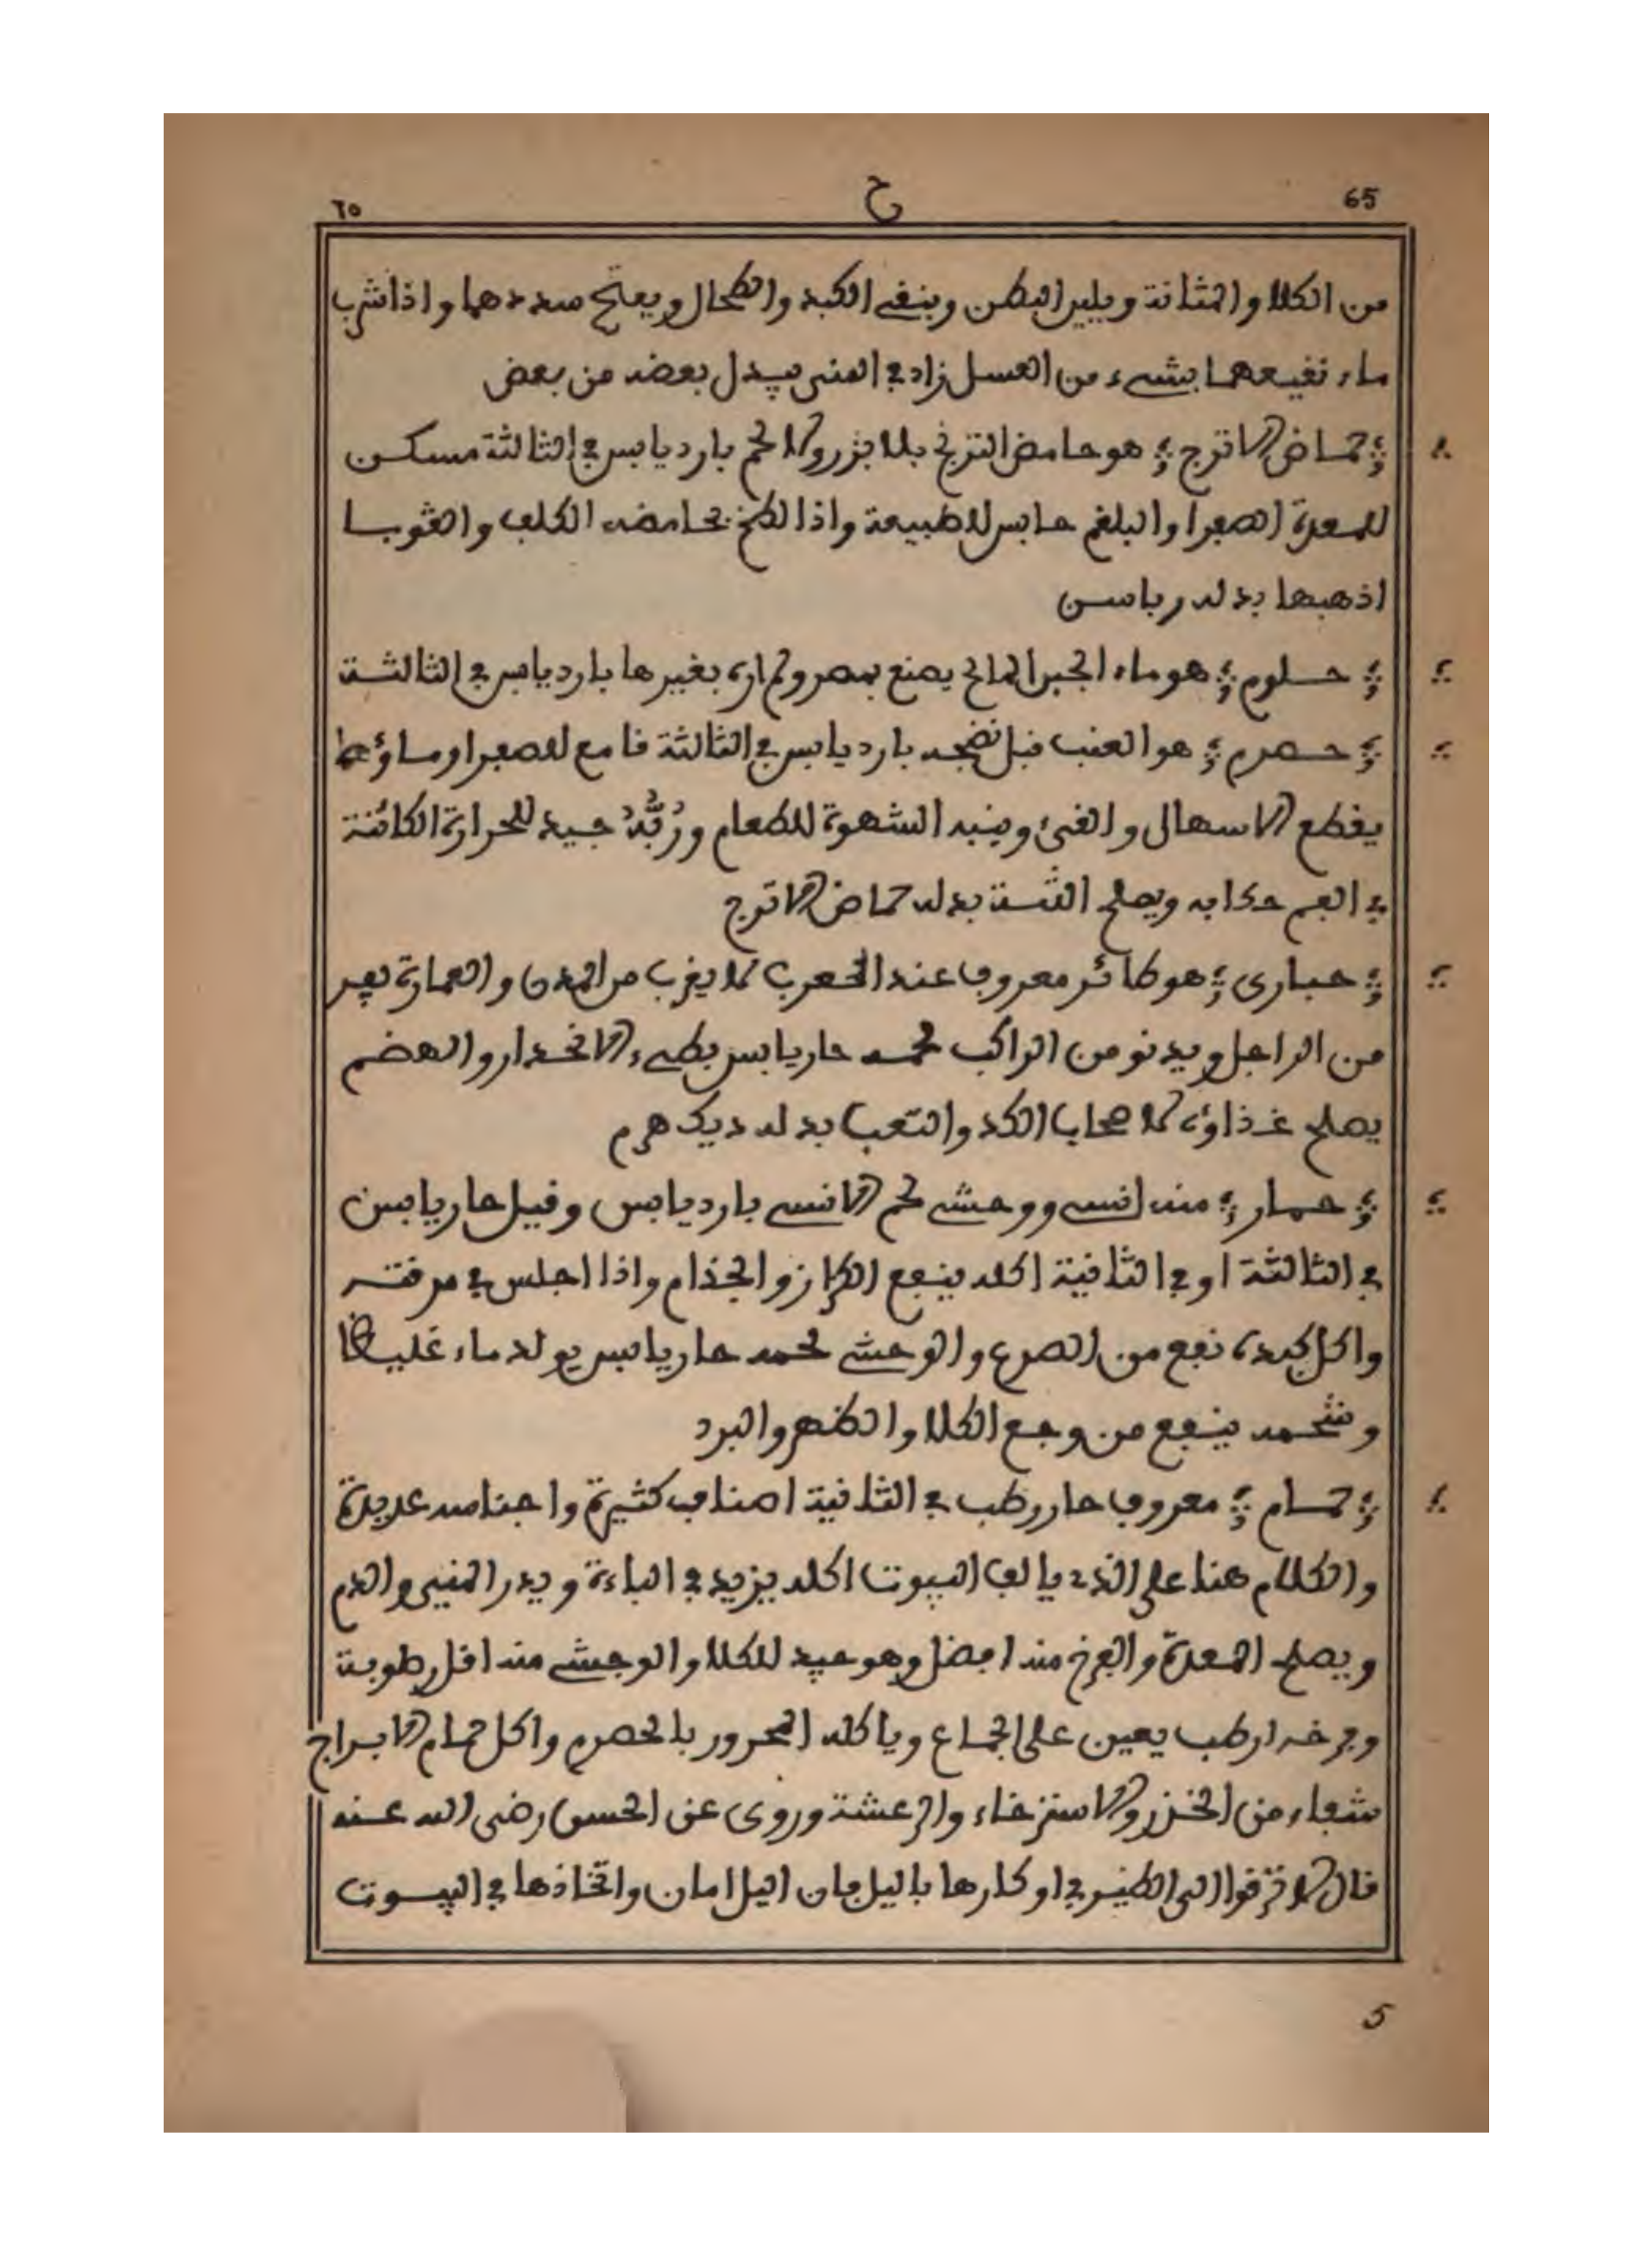 65 ح ٦٥
من الكلا والمثانة ويلين البطن وينقي الكبد والطحال ويفتح سددهما واذا شرب
ماء نقيعهما بشيء من العسل زاد في المني يبدل بعضه من بعض
حماض الاترج هو حامض الترنج بلا بزر ولا لحم بارد يابس في الثالثة مسكن
للمعدة الصفرا والبلغم حابس للطبيعة واذا لطخ بحامضه الكلف والقوبا
اذهبها بدله رباسن
حلوم هو ماء الجبن المالح يصنع بمصر ولم اره بغيرها بارد يابس في الثالثة
حصرم هو العنب قبل نضجه بارد يابس في الثالثة قامع للصفرا وماؤه
يقطع الاسهال والقيء وينبه الشهوة للطعام وربه جيد للحرارة الكائنة
في الفم دلكا به ويصلح اللثة بدله حماض الاترج
حبارى هو طائر معروف عند العرب لا يقرب من المدن والعمارة يفر
من الراجل ويدنو من الراكب لحمه حار يابس بطيء الانحدار والهضم
يصلح غذاؤه لاصحاب الكد والتعب بدله ديك هرم
حمار منه انسي ووحشي لحم الانسي بارد يابس وقيل حار يابس
في الثالثة او في الثانية اكله ينفع الكزاز والجذام واذا اجلس في مرقته
واكل كبده نفع من الصرع والوحشي لحمه حار يابس يولد ماء غليظا
وشحمه ينفع من وجع الكلا والظهر والبرد
حمام معروف حار رطب في الثانية اصنافه كثيرة واجناسه عديدة
والكلام هنا على الذي يالف البيوت اكله يزيد في الباءة ويدر المني والدم
ويصلح المعدة والفرخ منه افضل وهو جيد للكلا والوحشي منه اقل رطوبة
وفرخه ارطب يعين على الجماع وياكله المحرور بالحصرم واكل حمام الابراج
شفاء من الخزر والاسترخاء والرعشة وروي عن الحسن رضي الله عنه
قال لا ترقوا الى الطير في اوكارها باليل فان اليل امان واتخاذها في البيوت
5